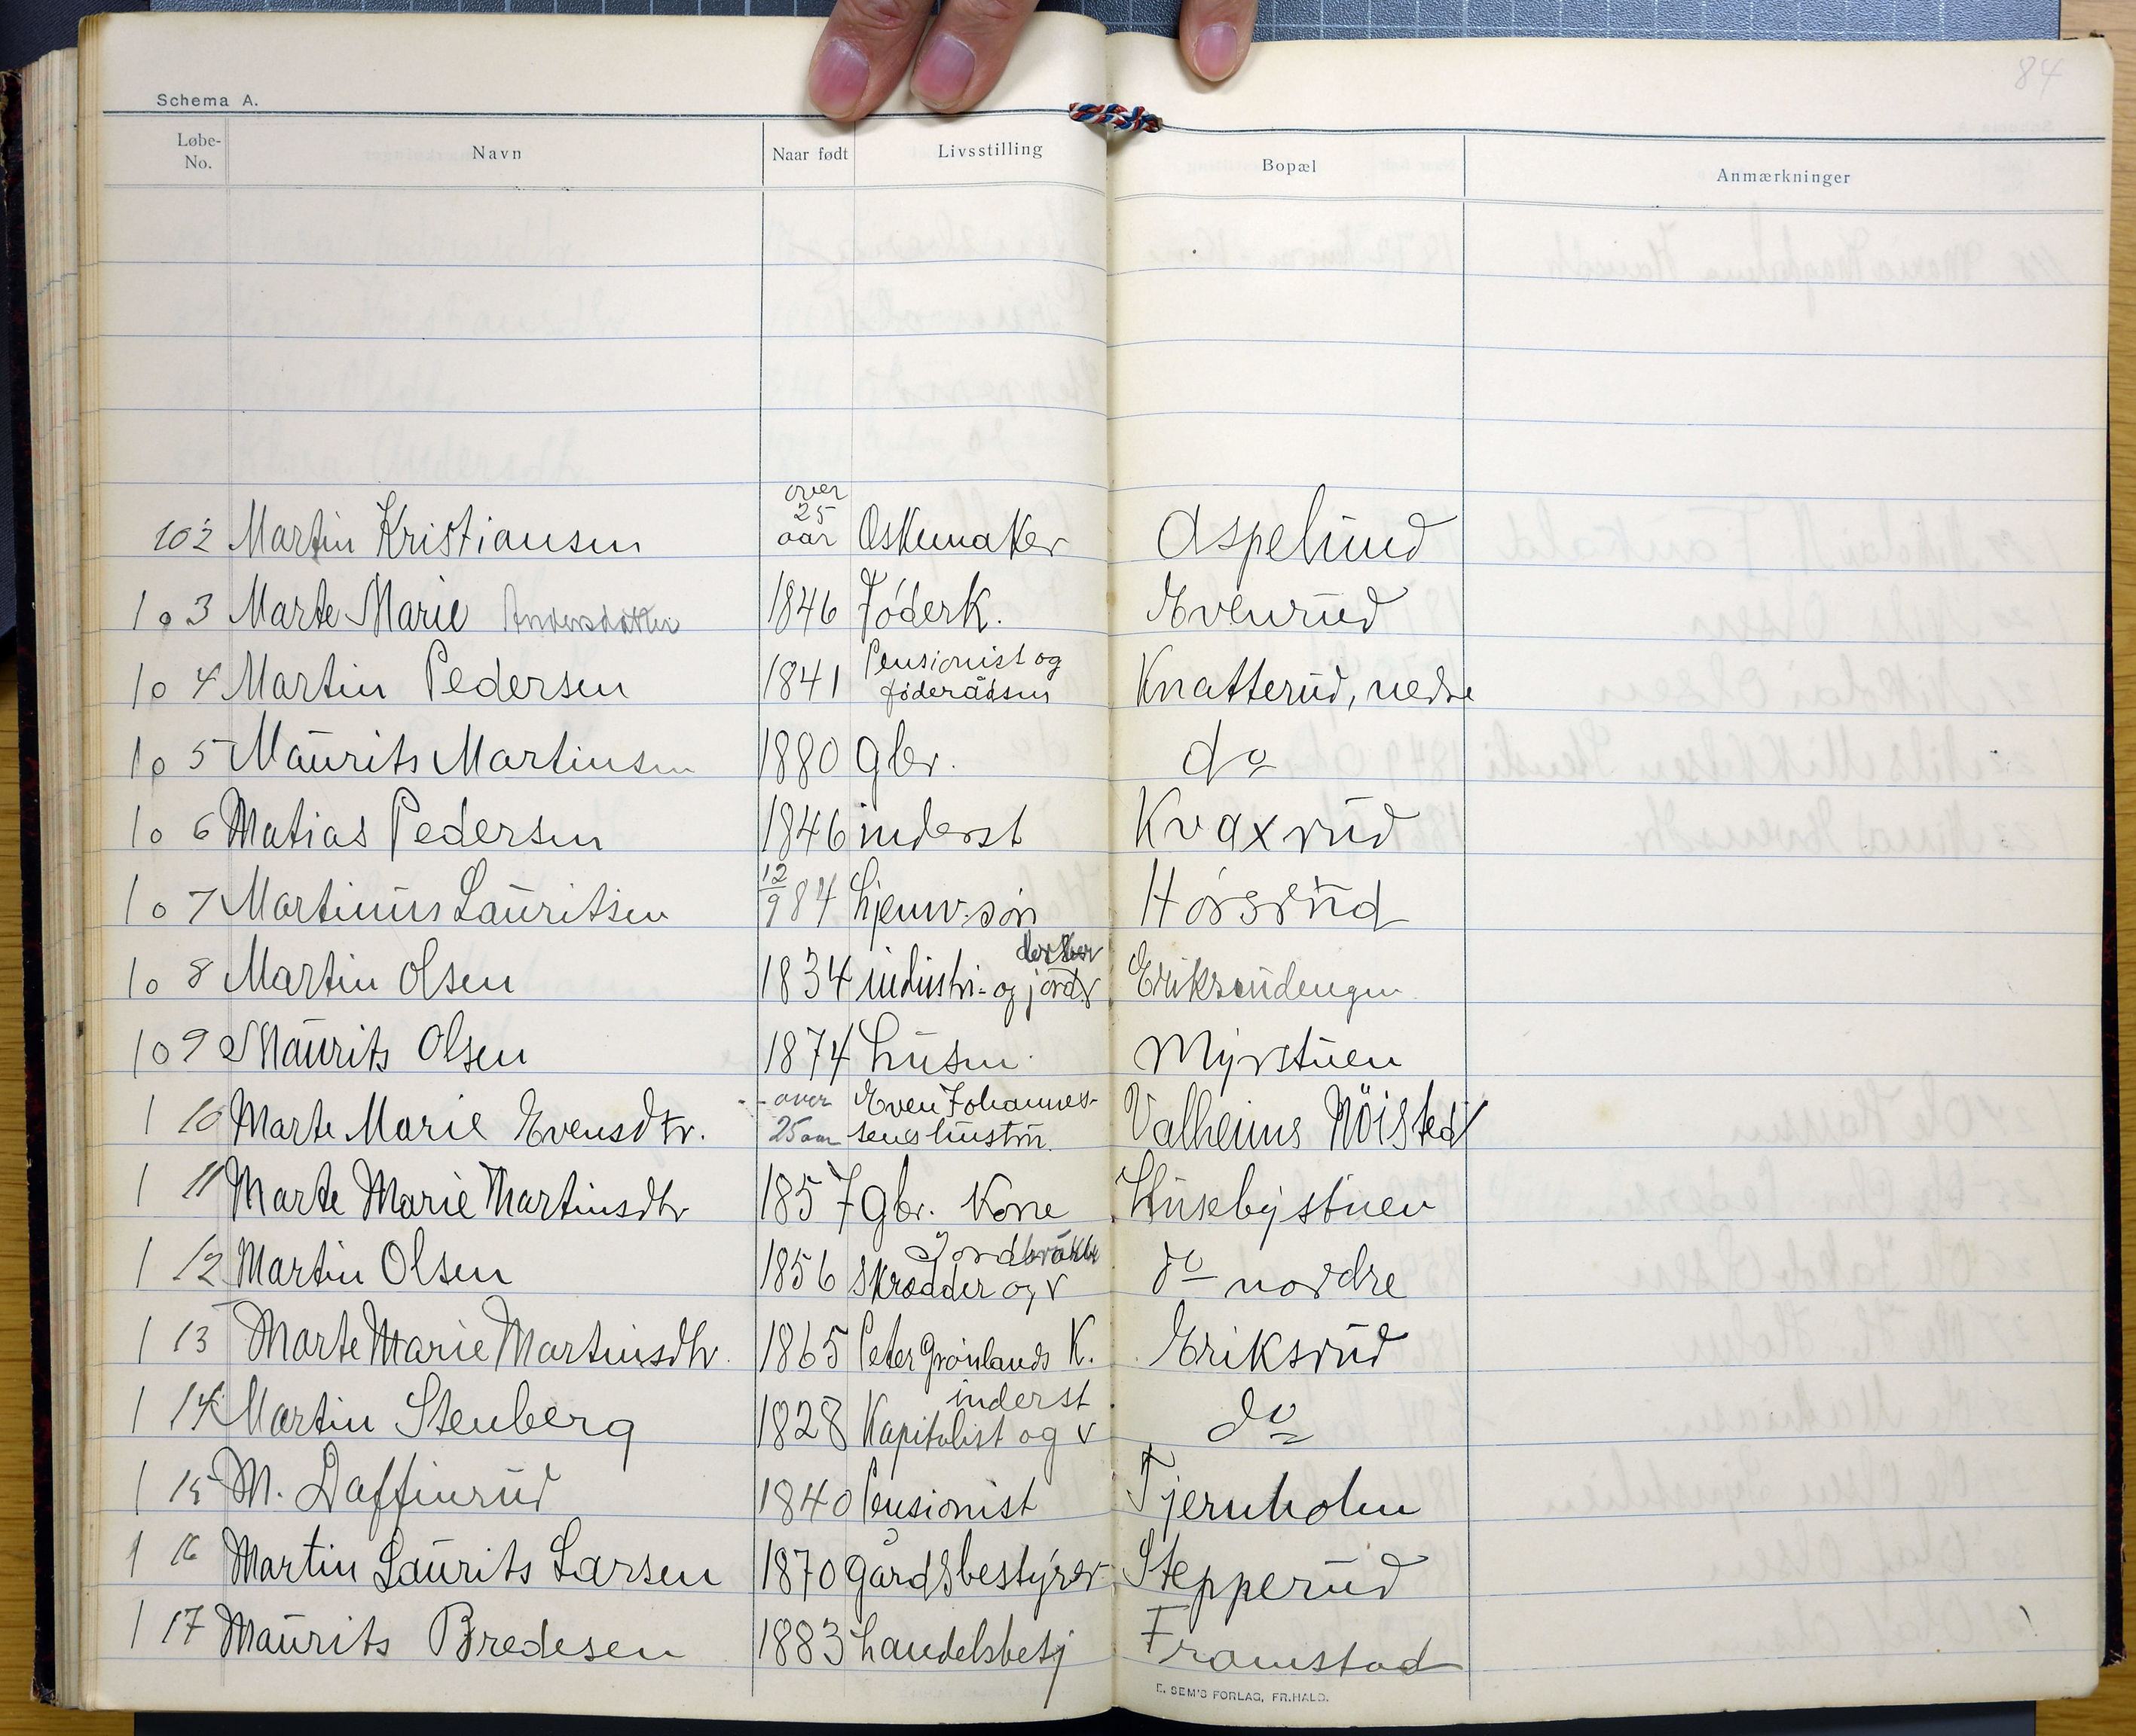 84
Schema A.
Løbe-No. Navn Naar født Livsstilling Bopæl Anmærkninger
102 Martin Kristiansen over 25 aar Oskemaker Aspelund
103 Marte Marie Andersdatter 1846 Föderk. Evenrud
104 Martin Pedersen 1841 Pensionist og föderådsm Knatterud, nedre
105 Maurits Martinsen 1880 gbr. do
106 Matias Pedersen 1846 inderst Kvaxrud
107 Martinus Lauritsen 12/9 84 hjemv. søn Hörsrud
108 Martin Olsen 1834 industri- og jordv Eriksrudengen
109 Maurits Olsen 1874 husm. Myrstuen
110 Marte Marie Evensdtr. over 25 aar Even Johannes-senes hustru. Valheims Nöisted
111 Marte Marie Martinsdtr 1857 gbr. Kone Husebystuen
112 Martin Olsen 1856 Skrædder og v Jordbruker do nordre
113 Marte Marie Martinsdtr. 1865 Peter Grönlands K. Eriksrud
114 Martin Stenberg 1828 Kapitalist og v inderst do
115 M. Daffinrud 1840 Pensionist Tjernholm
116 Martin Laurits Larsen 1870 Gårdsbestyrer Stepperud
117 Maurits Bredesen 1883 handelsbetj Framstad
E. SEM'S FORLAG, FR.HALD.